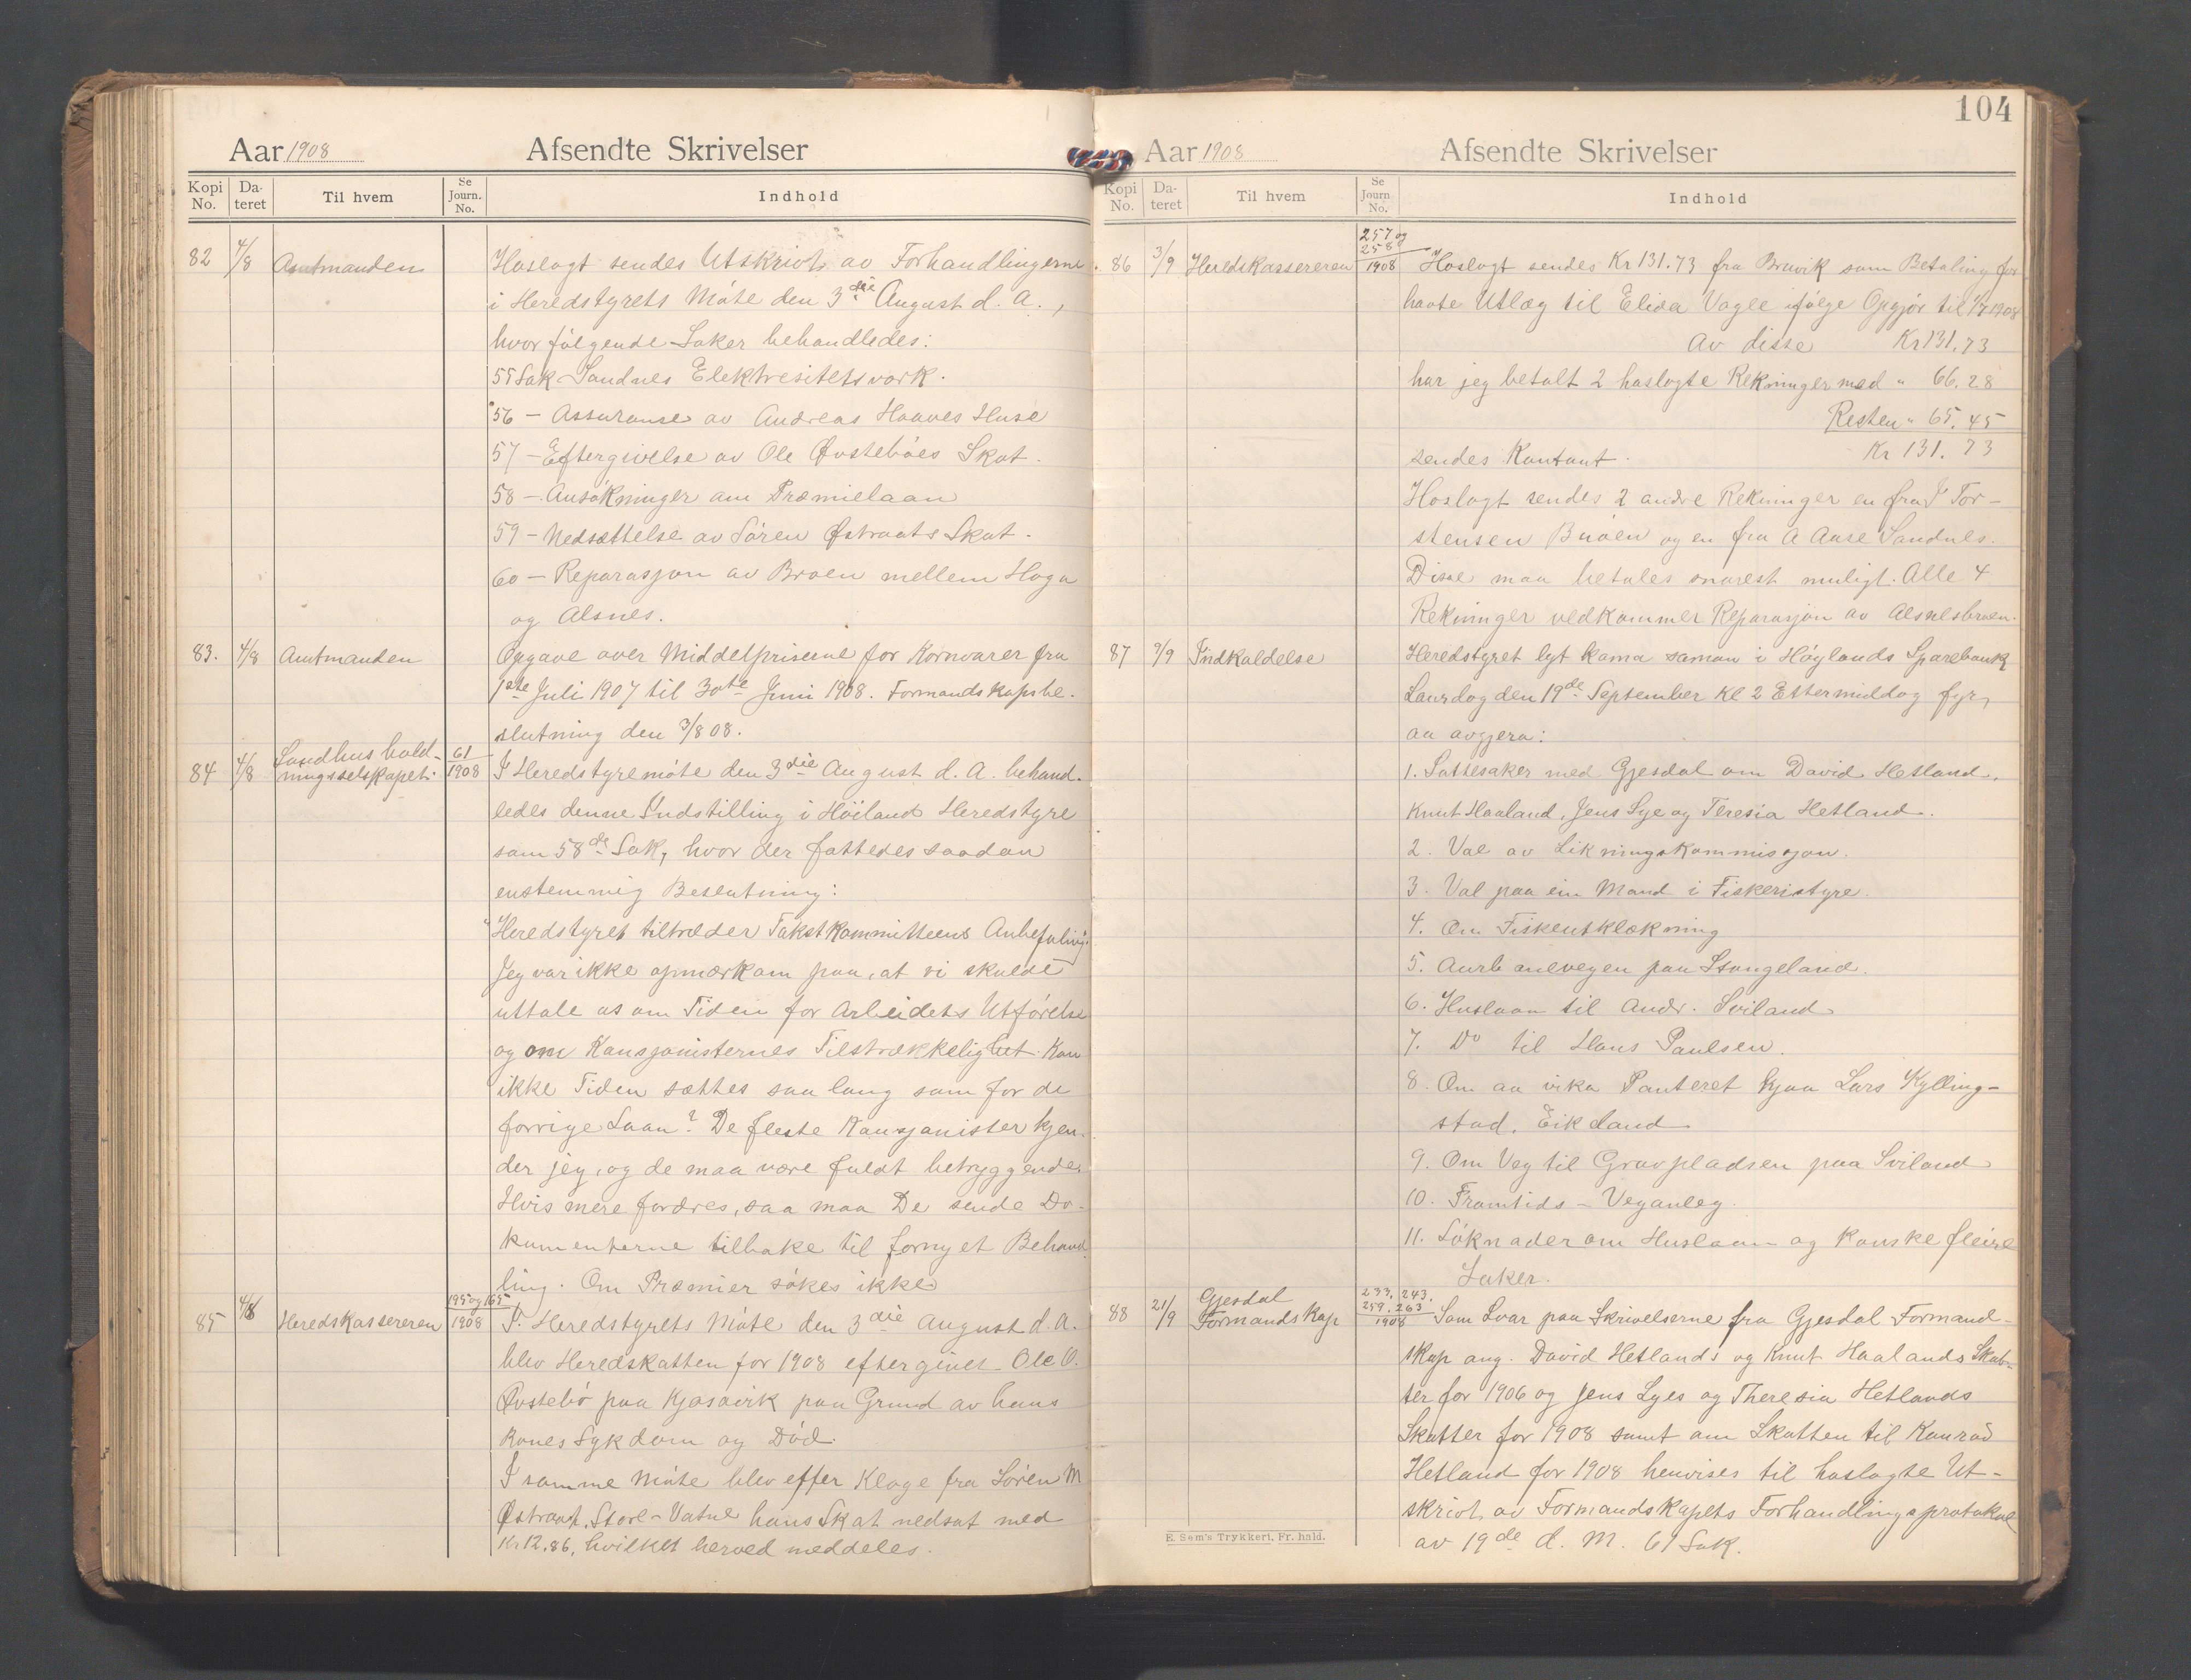 Aar 1908 Afsendte Skrivelser
Kopi No. Da-teret Til hvem Se Journ. No. Indhold
82 4/8 Amtmanden Hoslagt sendes Utskrivt av Forhandlingerne
i Heredstyrets Møte den 3die August d. A.,
hvor følgende Saker behandledes:
55 Sak Sandnes Elektresitetsverk.
56 - Assuranse av Andreas Haaves Huse
57 - Eftergivelse av Ole Øvstebøes Skat.
58 - Ansøkninger om Præmielaan
59 - Nedsættelse av Søren Østraats Skat.
60 - Reparasjon av Broen mellem Hoga
og Alsnes.
83. 4/8 Amtmanden Opgave over Middelpriserne for Kornvarer fra
1ste Juli 1907 til 30te Juni 1908. Formandskapsbe-
slutning den 3/8 08.
84 4/8 Landhushold-
ningsselskapet. 61/1908 I Heredstyremøte den 3die August d. A. behand-
ledes denne Indstilling i Høiland Heredstyre
som 58de Sak, hvor der fattedes saadan
enstemmig Beslutning:
"Heredstyret tiltræder Takstkommitteens Anbefaling".
Jeg var ikke opmærksam paa, at vi skulde
uttale os om Tiden for Arbeidets Utførelse
og om Kausjonisternes Tilstrækkelighet. Kan
ikke Tiden sættes saa lang som for de
forrige Laan? De fleste Kausjonister kjen-
der jeg, og de maa være fuldt betryggende.
Hvis mere fordres, saa maa De sende Do-
kumenterne tilbake til fornyet Behand-
ling. Om Præmier søkes ikke
85 4/8 Heredskassereren 195 og 165/1908 I Heredstyrets Møte den 3die August d. A.
blev Heredskatten for 1908 eftergivet Ole O.
Øvstebø paa Kjosavik paa Grund av hans
Kones Sykdom og Død.
I samme Møte blev efter Klage fra Søren M
Østraat, Store-Vatne hans Skat nedsat med
Kr 12.86, hvilket herved meddeles.
104
Aar 1908 Afsendte Skrivelser
Kopi No. Da-teret Til hvem Se Journ. No. Indhold
86 3/9 Heredskassereren 257 og 258/1908 Hoslagt sendes Kr 131.73 fra Bruvik som Betaling for
havte Utlæg til Elida Vagle ifølge Opgjør til 1/7 1908
Av disse Kr 131.73
har jeg betalt 2 hoslagte Rekninger med " 66.28
Resten " 65.45
sendes Kontant. Kr 131.73
Hoslagt sendes 2 andre Rekninger en fra T Tor-
stensen Bråen og en fra A Aase Sandnes.
Disse maa betales snarest muligt. Alle 4
Rekninger vedkommer Reparasjon av Alsnesbroen.
87 9/9 Indkaldelse Heredstyret lyt koma saman i Høylands Sparebank
Laurdag den 19de September Kl 2 Ettermiddag fyr
aa avgjera:
1. Sattesaker med Gjesdal om David Hetland,
Knut Haaland, Jens Lye og Teresia Hetland.
2. Val av Likningskommisjon.
3. Val paa ein Mand i Fiskeristyre.
4. Om Fiskeutklækning
5. Aurbanevegen paa Stangeland.
6. Huslaan til Andr. Sviland
7. Do til Hans Paulsen.
8. Om aa vika Panteret hjaa Lars Kylling-
stad, Eikeland
9. Om Veg til Gravpladsen paa Sviland
10. Framtids-Veganleg.
11. Søknader om Huslaan og kanske fleire
Saker.
88 21/9 Gjesdal
Formandskap 233, 243, 259, 263/1908 Som Svar paa Skrivelserne fra Gjesdal Formand-
skap ang. David Hetlands og Knut Haalands Skat-
ter for 1906 og Jens Lyes og Theresia Hetlands
Skatter for 1908 samt om Skatten til Konrad
Hetland for 1908 henvises til hoslagte Ut-
skrivt av Formandskapets Forhandlingsprotokol
av 19de d. M. 61 Sak.
E. Sem's Trykkeri, Fr.hald.